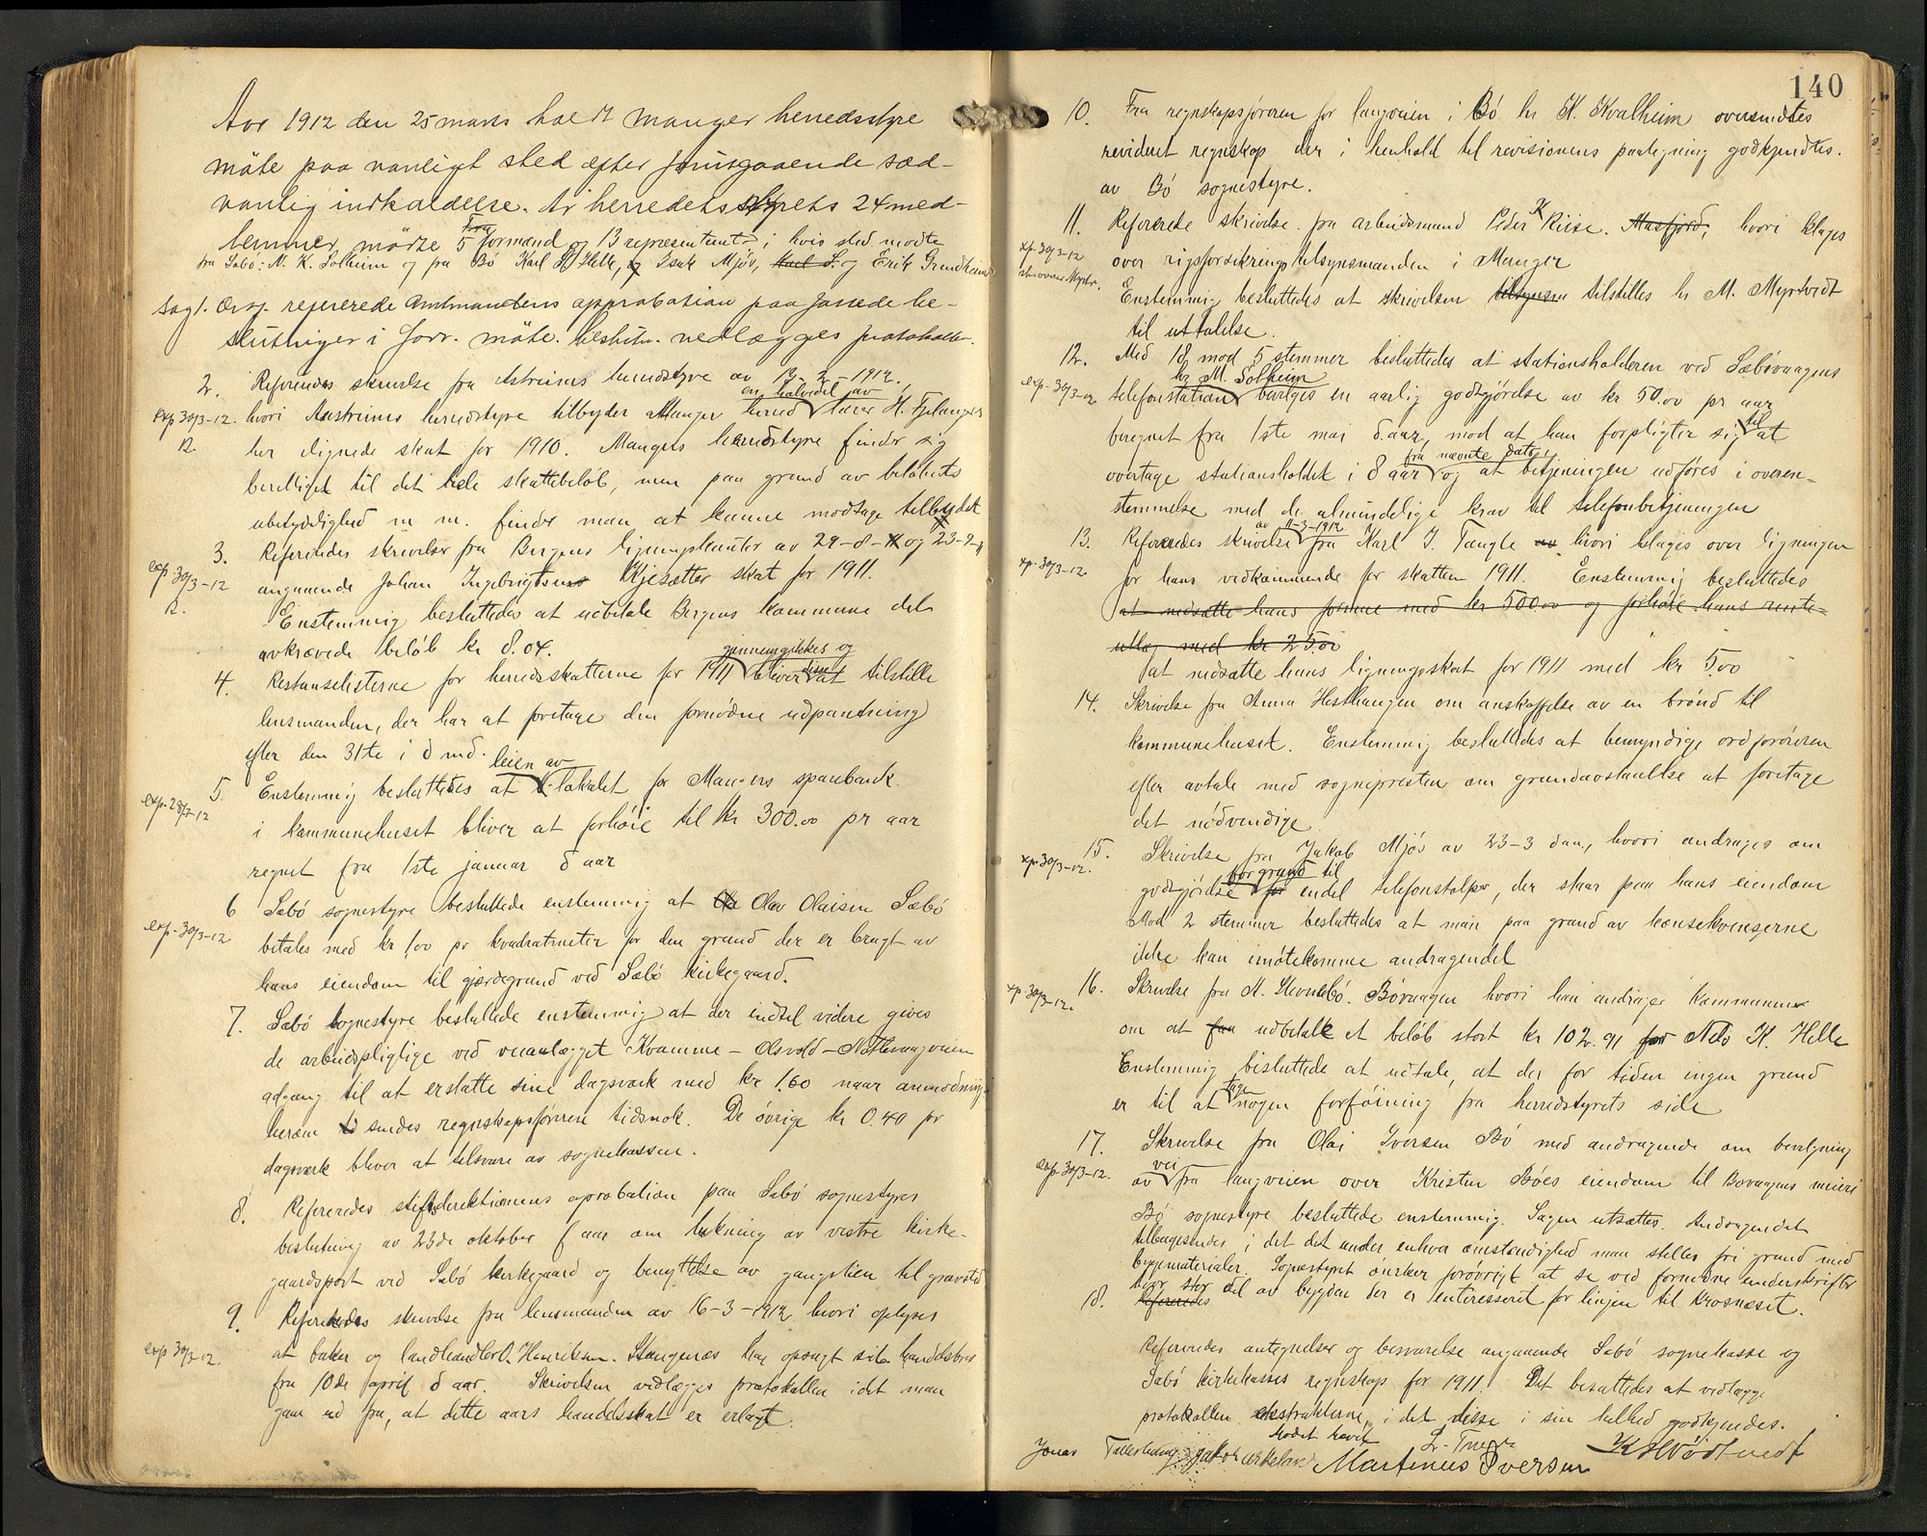 Aar 1912 den 25 mars holdt Manger herredsstyre
møte paa vanligt sted efter forutgaaende sæd-
vanlig indkaldelse. Av herredsstyrets 24 med-
lemmer møtte 5 formænd og 13 repræsentanter i hvis sted mødte
fra Sæbø: M. K. Solheim og fra Bø Karl H. Helle, Isak Mjøs, Karl S. og Erik Grundheim
Sag 1. Ordf. refererede Amtmandens approbasian paa fattede be-
slutninger i forr. møte. beslutn. vedlægges protokollen.
2. Refereredes skrivelse fra Austreims herredsstyre av 13-2-1912,
en halvdel av
exp 30/3-12. hvori Austreims herredstyre tilbyder Manger herred lærer H. Fjelanger
R. her lignede skat for 1910. Mangers herredstyre finder sig
berettiget til det hele skattebeløb, men paa grund av beløbets
ubetydelighed m m. finder man at kunne modtage tilbudet
3. Refereredes skrivelser fra Bergens ligningskontor av 29-8-11 og 23-2-
exp 30/3-12 angaaende Johan Ingebrigtsens Kjesetter skat for 1911.
R. Enstemmig besluttedes at udbetale Bergens kommune det
avkrævede beløb kr 8.04.
gjennemgikkes og
4. Restanselisterne for herredsskatterne for 1911 blever disse at tilstille
lensmanden, der har at foretage den fornødne udpantning
efter den 31te i d md.
leien av
5. Enstemmig besluttedes at lokalet for Mangers sparebank
exp. 28/3-12 i kommunehuset bliver at forhøie til kr 300.00 pr aar
regnet fra 1ste januar d aar
6 Sæbø sognestyre besluttede enstemmig at Ole Olav Olaisen Sæbø
exp. 30/3-12 betales med kr 1,00 pr kvadratmeter for den grund der er bragt av
hans eiendom til gjærdegrund ved Sæbø kirkegaard.
7. Sæbø sognestyre besluttede enstemmig at der indtil videre gives
de arbeidspligtige ved veianlægget Kvamme – Olsvold – Nøtlevaagveien
adgang til at erstatte sine dagsverk med kr 1.60 naar anmodning
herom sendes regnskapsføreren tidsnok. De øvrige kr 0.40 pr
dagsverk bliver at tilsvare av sognekassen.
8. Refereredes stiftsdirektionens aprobation paa Sæbø sognestyres
beslutning av 23de oktober f aar om lukning av vestre kirke-
gaardsport ved Sæbø kirkegaard og benyttelse av gangstien til gravsted
9. Refereredes skrivelse fra lensmanden av 16-3-1912 hvori oplyses
exp 30/3-12. at baker og landhandler O. Henriksen. Stangenæs har opsagt sit handelsbrev
fra 10de april d aar. Skrivelsen vedlægges protokollen idet man
gaar ud fra, at dette aars handelsskat er erlagt.
140
10. Fra regnskapsføreren for langveien i Bø hr K. Kvalheim oversendtes
revideret regnskap der i henhold til revisionens paategning godkjendtes.
av Bø sognestyre.
11. Refererede skrivelse fra arbeidsmand Peder K Riise. Masfjord, hvori klages
exp. 30/3-12 over rigsforsikrings tilsynsmanden i Manger
Enstemmig besluttedes at skrivelsen tilsynsm tilstilles hr M. Myrtvedt
til uttalelse.
12. Med 18 mod 5 stemmer besluttedes at stationsholderen ved Sæbøvaagens
hr M. Solheim
exp. 30/3-12 telefonstation bevilges en aarlig godtgjørelse av kr 50.00 pr aar
beregnet fra 1ste mai d. aar, mod at han forpligter sig til at
fra nævnte dato
overtage stationsholdet i 8 aar og at betjeningen udføres i overen-
stemmelse med de almindelige krav til telefonbetjeningen
av 11-3-1912
13. Refereredes skrivelse fra Karl J. Tængle av hvori klages over ligningen
exp. 30/3-12. for hans vedkommende for skatten 1911. Enstemmig besluttedes
at nedsætte hans formue med kr 500.00 og forhøie hans rente-
utlæg med kr 25.00
at nedsætte hans ligningsskat for 1911 med kr 5.00
14. Skrivelse fra Anna Hesthaugen om anskaffelse av en brønd til
kommunehuset. Enstemmig besluttedes at bemyndige ordføreren
efter avtale med sognepresten om grundavstaaelse at foretage
det nødvendige.
15. Skrivelse fra Jakob Mjøs av 23-3 d aa, hvori andrages om
for grund til
exp. 30/3-12. godtgjørelse for endel telefonstolper, der staar paa hans eiendom
Mod 2 stemmer besluttedes at man paa grund av konsekvenserne
ikke kan imøtekomme andragendet
16. Skrivelse fra A. Stevnebø. Bøvaagen hvori han andrager kommunen
exp 30/3-12. om at faa udbetalt et beløb stort kr 102.91 for Nels K. Helle
Enstemmig besluttede at udtale, at der for tiden ingen grund
er til at tage nogen forføining fra herredstyrets side
17. Skrivelse fra Olai Iversen Bø med andragende om bevilgning
exp. 30/3-12. av vei fra langveien over Kristen Bøes eiendom til Bøvaagens meieri
Bø sognestyre besluttede enstemmig. Sagen utsættes. Andragendet
tilbagesendes i det det under enhver omstendighed maa stilles fri grund med
byggematerialer. Sognestyret ønsker forøvrigt at se ved fornødne underskrifter
hvor stor del av bygden der er interesseret for linjen til Krosneset.
18. Refereredes
Refereredes antegnelser og besvarelse angaaende Sæbø sognekasse og
Sæbø kirkekasses regnskap for 1911. Det besluttedes at vedlægge
protokollen ekstrakterne, i det disse i sin helhed godkjendes.
Mødet hævet
Jonas Martinus Iversen